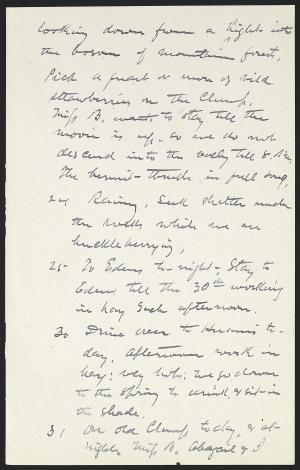 looking down from a height into
the bosom of mountain forest.
Pick a quart or more of wild
strawberries on the Clump.
Miss B. wants to stay till the
moon is up, so we do not
descend into the valley till 8 P.M.
The hermit-thrush in full song.
24 Raining, Seek shelter under
the rocks while we are
huckleberrying,
25- To Edens to-night-, Stay to
Edens till the 30th working
in hay each afternoon.
30 Drive over to to-
day, afternoon work in
hay; very hot; we go down
to the spring to drink & sit in
the shade.
31 On old Clump to-day, & at
night, Miss B. Abigail & I